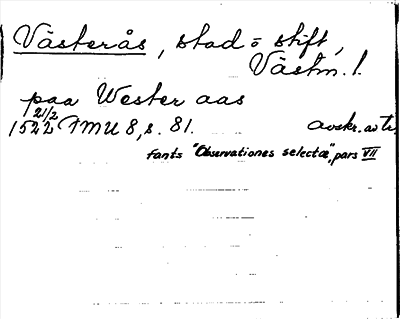 Västerås, stad o stift,
Västm. l.
paa Wester aas
21/2
1522 FMU 8, s. 81. avskr. av tr.
Fants "Observationes selectæ", pars VII